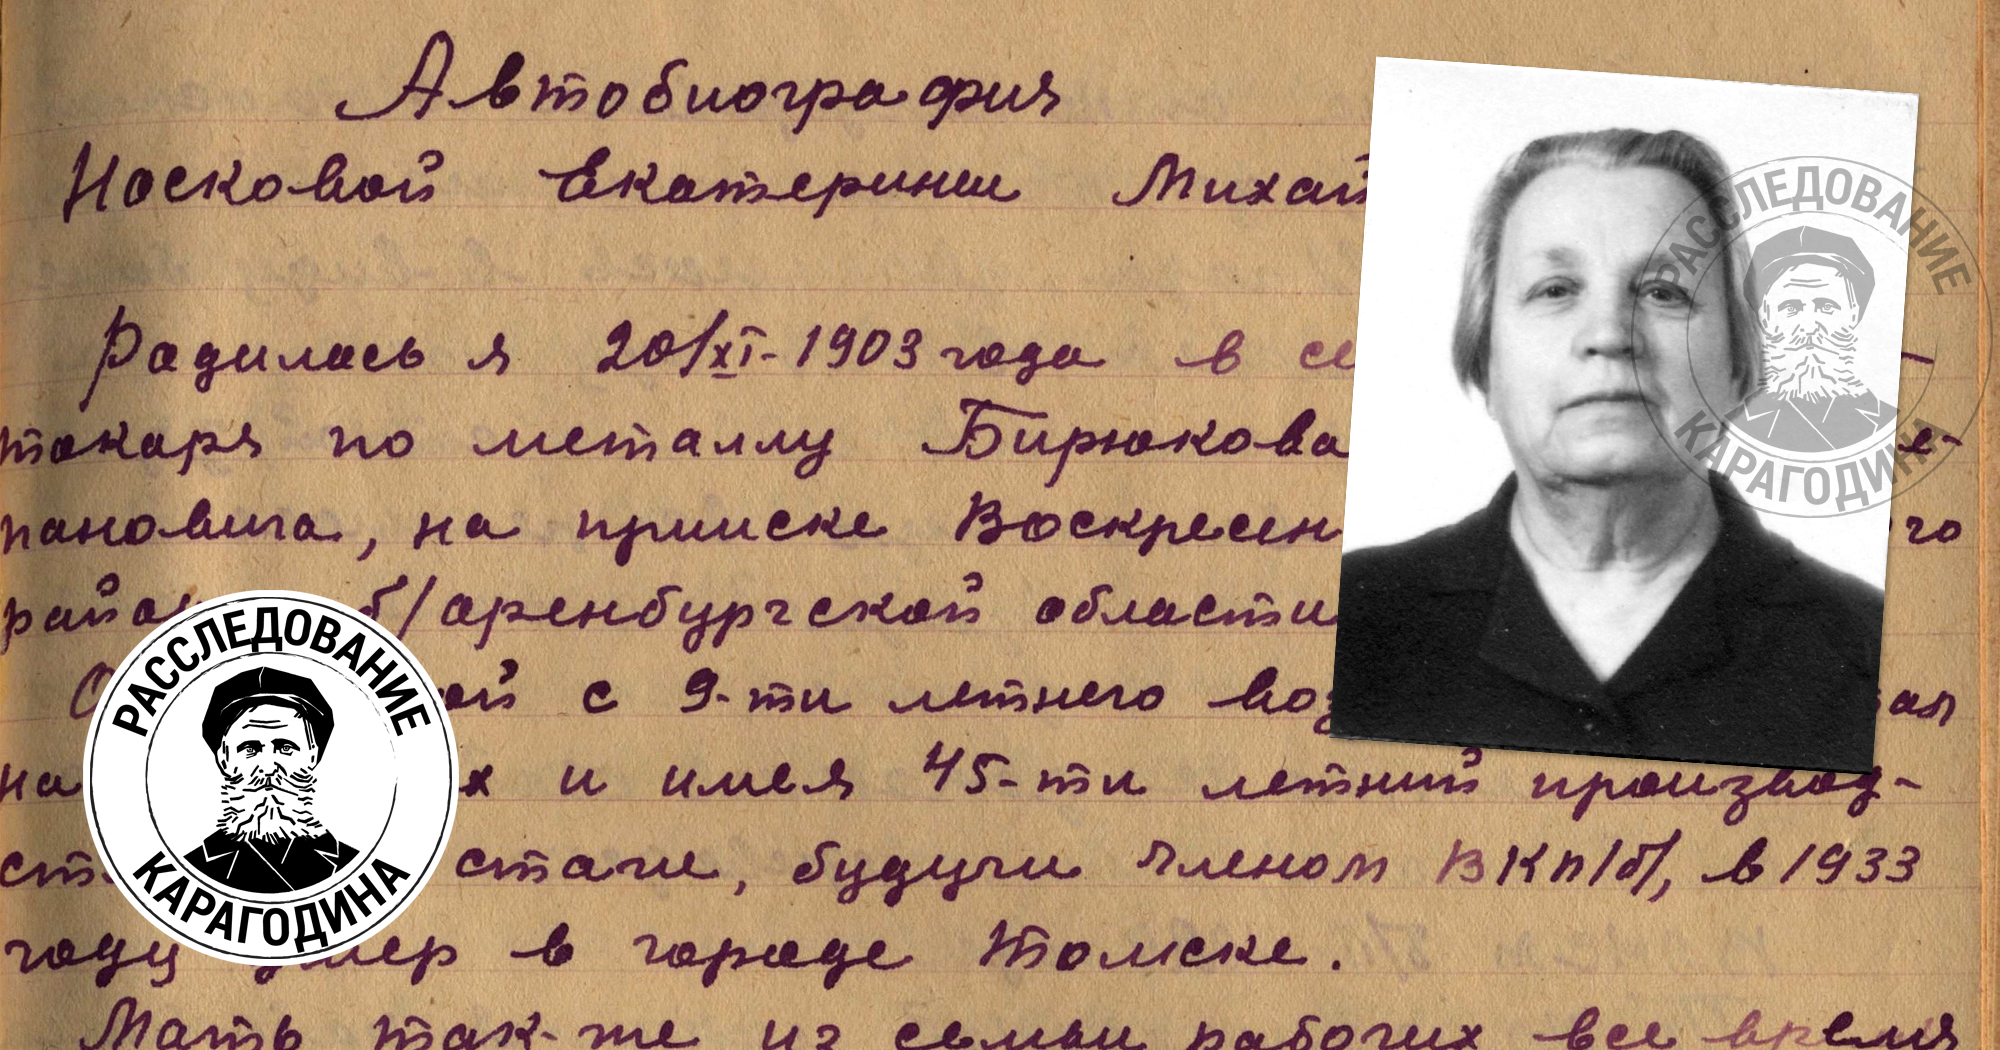 Автобиография
Носковой Екатерины Михай
Родилась я 20/XI-1903 года в се
токаря по металлу Бирюкова е-
пановича, на прииске Воскресен го
райо б/оренбургской области
О ой с 9-ти летнего воз ал
на х и имея 45-ти летний производ-
ст стаже, будучи членом ВКП/б/, в 1933
году умер в городе Томске.
Мать так-же из семьи рабочих все время
РАССЛЕДОВАНИЕ
КАРАГОДИНА
РАССЛЕДОВАНИЕ
КАРАГОДИНА